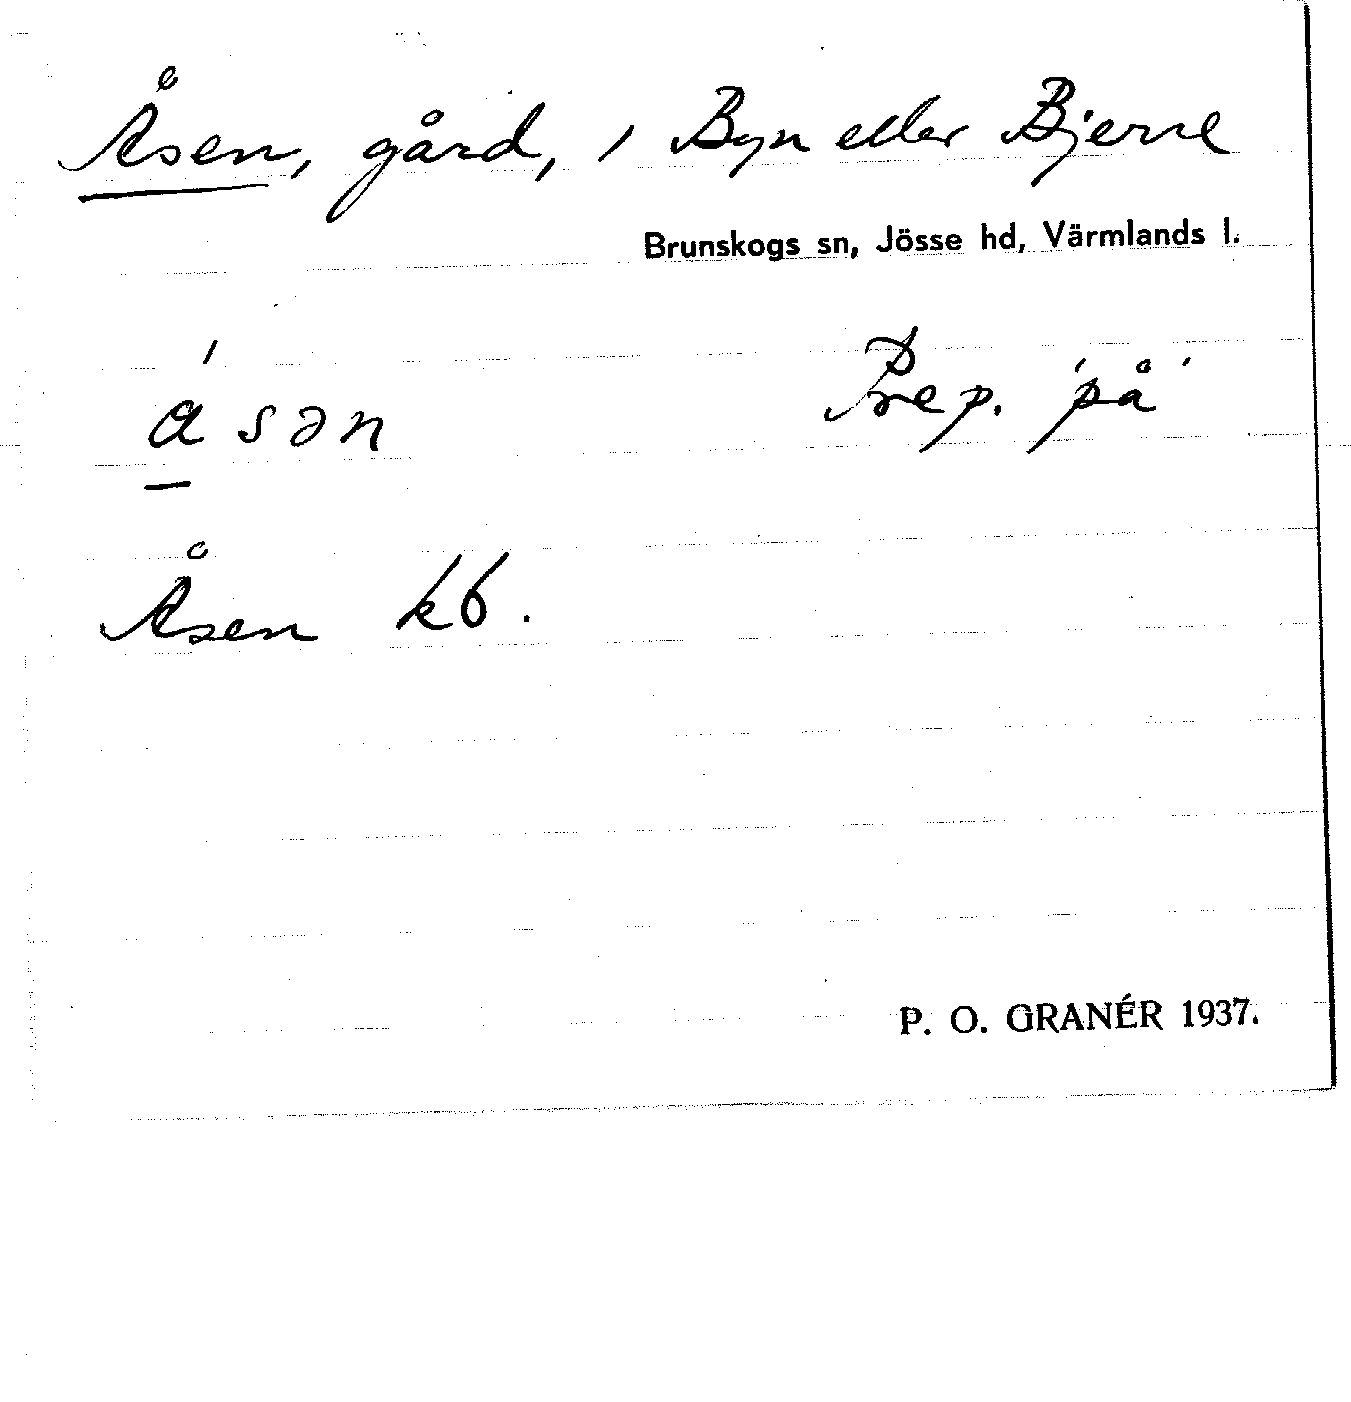 Åsen, gård, i Byn eller Bjerne
Brunskogs sn, Jösse hd, Värmlands l.
ásən Prep. 'på'
Åsen kb.
P. O. GRANÉR 1937.